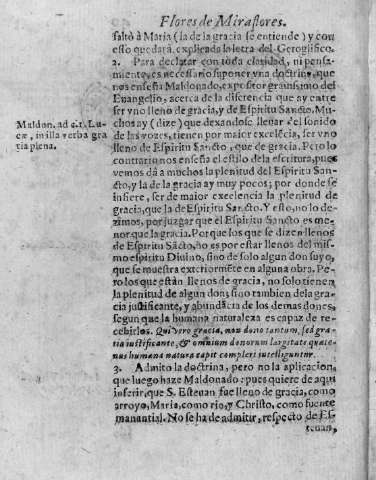 Flores de Miraflores.
faltò à Maria (la de la gracia se entiende) y con
esto quedarà explicada la letra del Geroglifico.
2. Para declarar con toda claridad, ni pensa-
miento, es necessario suponer vna doctrina, que
nos enseña Maldonado, expositor grauissimo del
Euangelio, acerca de la diferencia que ay entre
ser vno lleno de gracia, y de Espiritu Sancto. Mu-
chos ay (dize) que dexandose lleuar d'el sonido
de las vozes, tienen por maior excelēcia, ser vno
lleno de Espiritu Sancto, que de gracia. Pero lo
contrario nos enseña el estilo dela escritura, pues
vemos dà a muchos la plenitud del Espiritu San-
cto, y la de la gracia ay muy pocos; por donde se
infiere, ser de maior excelencia la plenitud de
gracia, que la de Espiritu Sancto. Y esto, no lo de-
zimos, por juzgar que el Espiritu Sancto es me-
nor que la gracia. Porque los que se dizen llenos
de Espiritu Sācto, no es por estar llenos del mis-
mo espiritu Diuino, sino de solo algun don suyo,
que se muestra exteriormēte en alguna obra. Pe-
ro los que están llenos de gracia, no solo tienen
la plenitud de algun don, sino tambien dela gra-
cia justificante, y abundācia de los demas dones,
segun que la humana naturaleza es capaz de re-
cebirlos. Qui vero gracia, non dono tantum, sed gra-
tia iustificante, & omnium donorum largitate quate-
nus humana natura capit compleri intelliguntur.
3. Admito la doctrina, pero no la aplicacion,
que luego haze Maldonado: pues quiere de aqui
inferir, que S. Esteuan fue lleno de gracia, como
arroyo, Maria, como rio, y Christo, como fuente
manantial. No se ha de admitir, respecto de Es-
teuan,
Maldon. ad c. 1. Lu-
cæ, in illa verba gra
tia plena.